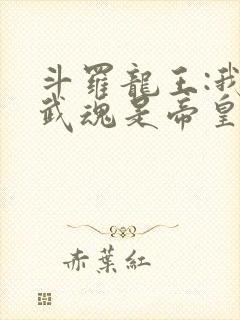 斗羅龍王:我
武魂是帝皇
赤葉紅